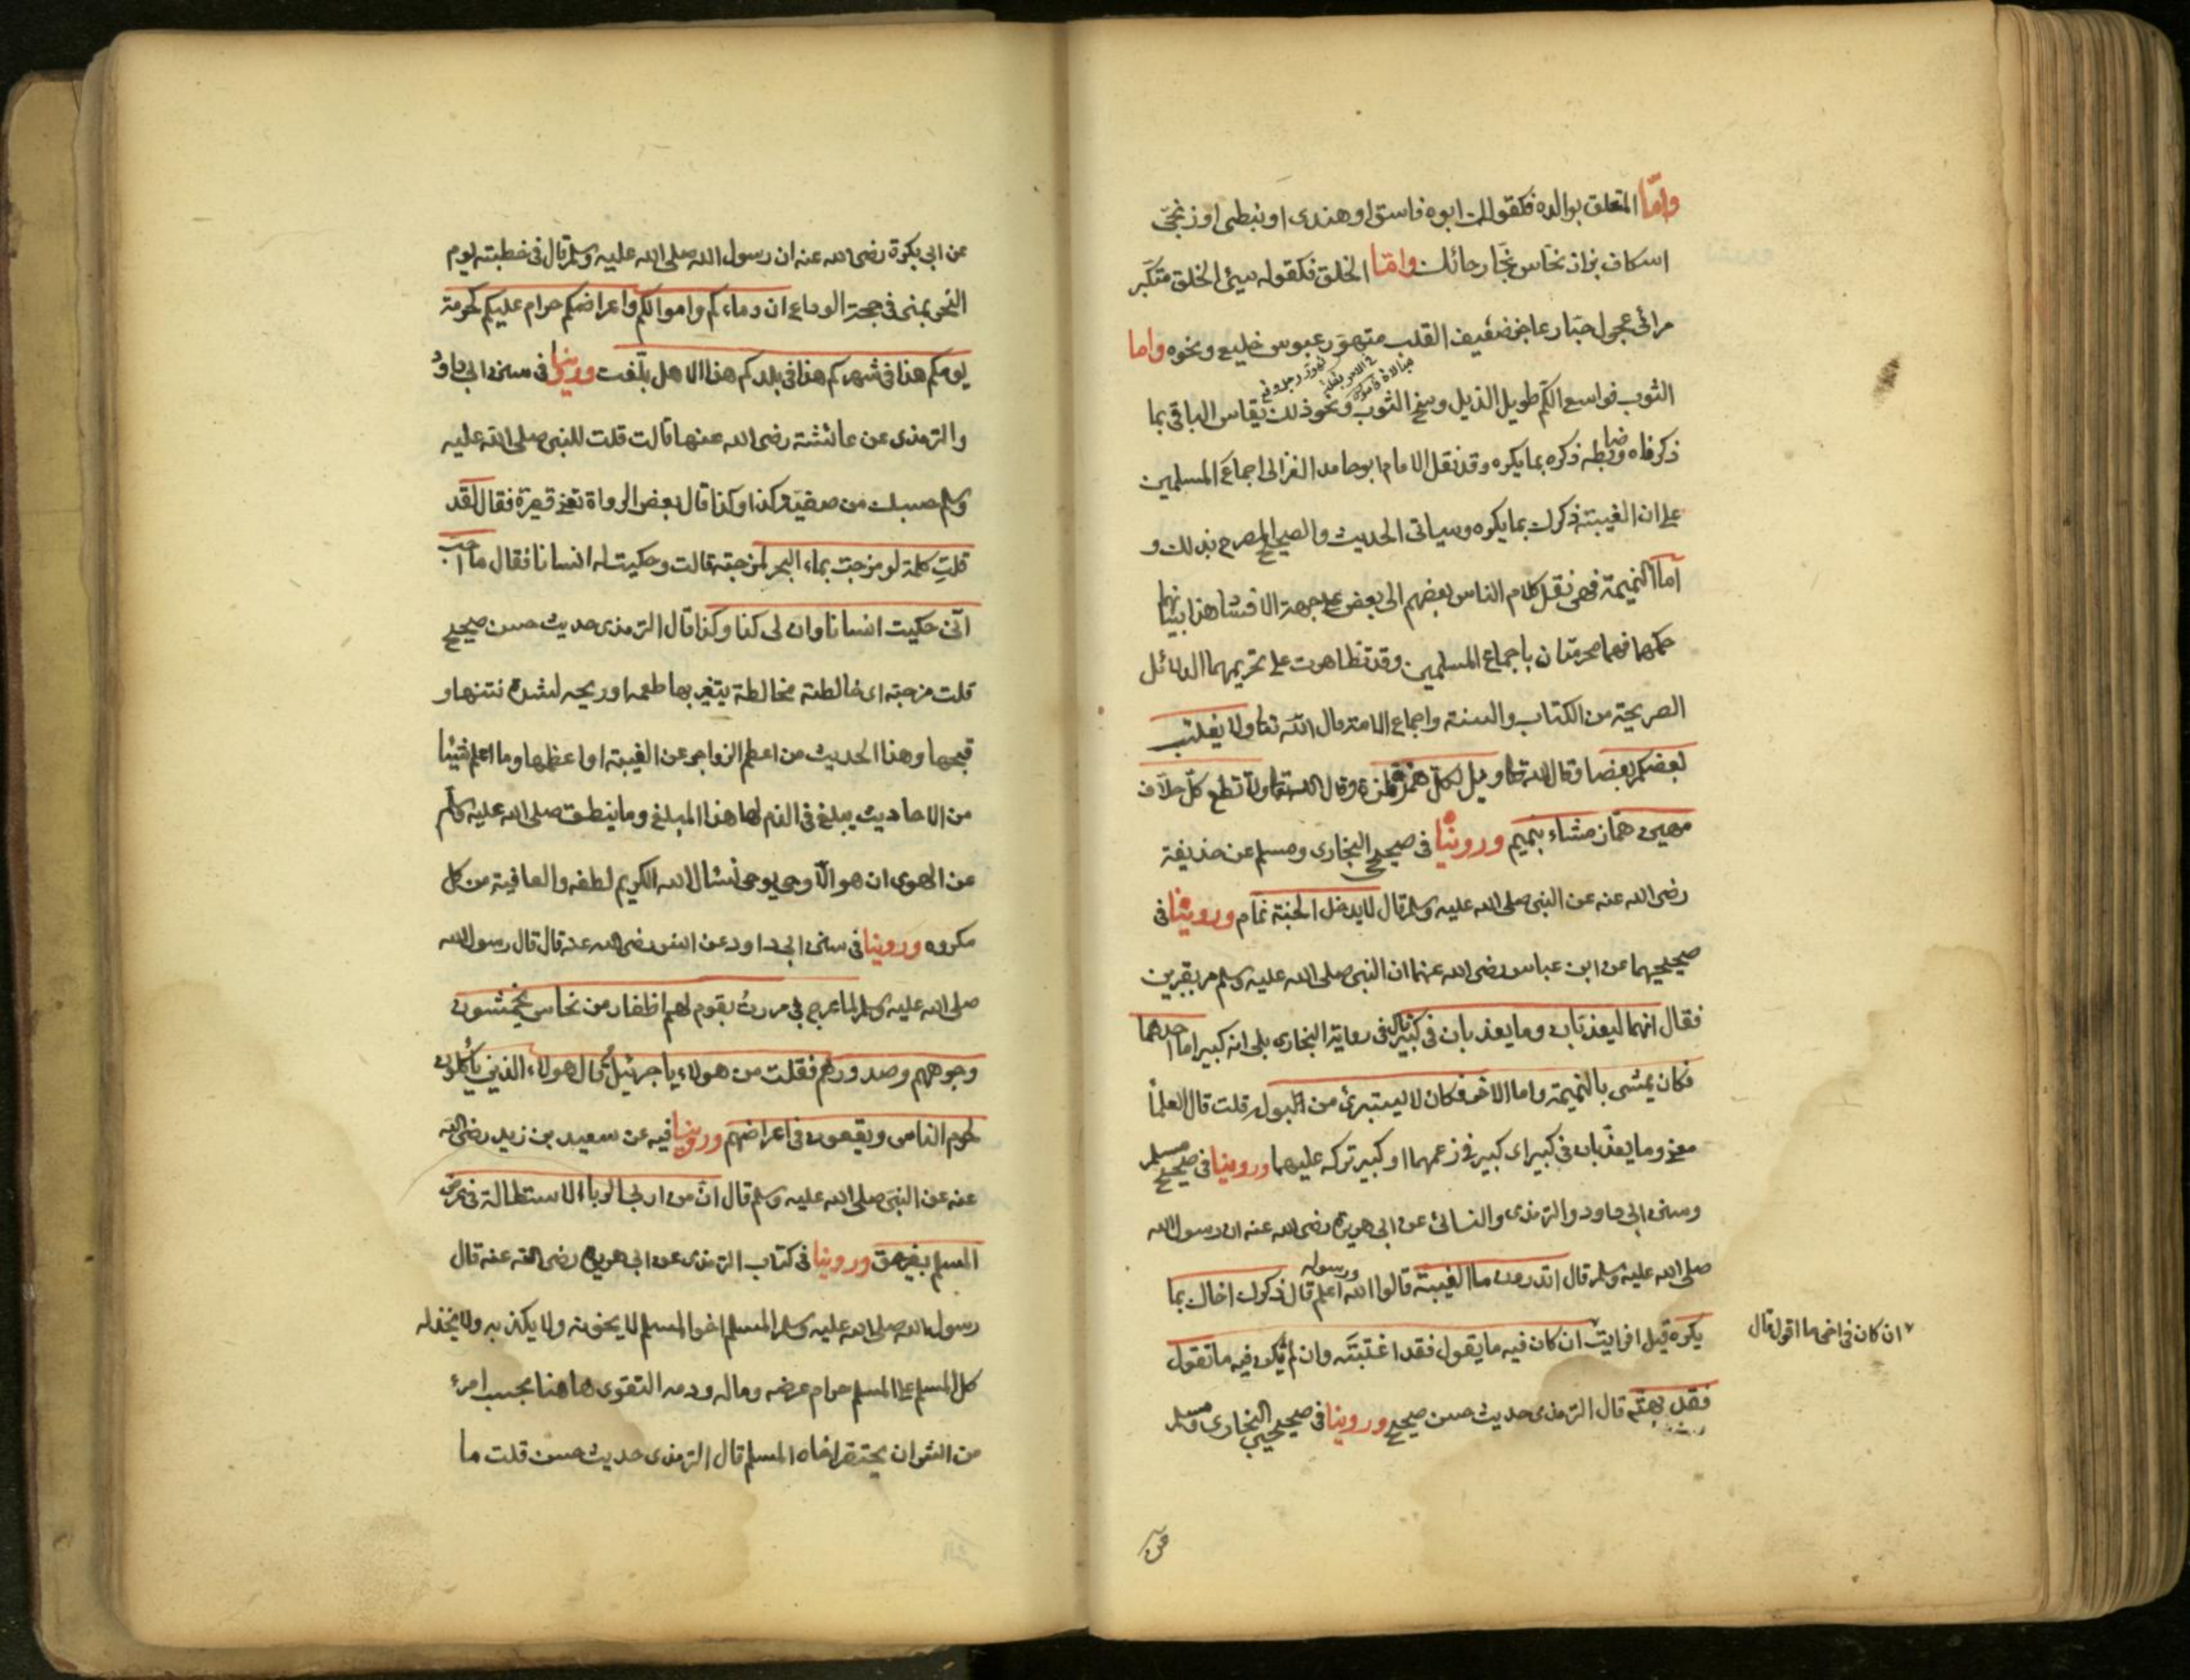 واما المتعلق بوالده فكقولك ابوه فاسق او هندى او نبطى او زنجى
اسكاف بزاز نخاس نجار حائك واما الخلق فكقوله سيئ الخلق متكبر
مرائى عجول جبار عاجز ضعيف القلب متهور عبوس خليع ونحوه واما
الثوب فواسع الكم طويل الذيل وسخ الثوب ونحو ذلك يقاس الباقى بما
ذكرناه وضابطه ذكره بما يكره وقد نقل الامام ابو حامد الغزالى اجماع المسلمين
على ان الغيبة ذكرك بما يكره وسياتى الحديث والصحيح المصرح بذلك و
اما النميمة فهى نقل كلام الناس بعضهم الى بعض على جهة الافساد هذا بيانهما
حكمها فهما محرمتان باجماع المسلمين وقد تظاهرت على تحريمهما الدلائل
الصريحة من الكتاب والسنة واجماع الامة قال الله تعا ولا يغتب
بعضكم بعضا وقال الله تعا ويل لكل همزة لمزة وقال الله تعا ولا تطع كل حلاف
مهين هماز مشاء بنميم وروينا فى صحيحى البخارى ومسلم عن حذيفة
رضى الله عنه عن النبى صلى الله عليه وسلم قال لا يدخل الجنة نمام وروينا فى
صحيحيهما عن ابن عباس رضى الله عنهما ان النبى صلى الله عليه وسلم مر بقبرين
فقال انهما ليعذبان وما يعذبان فى كبير قال فى رواية البخارى بلى انه كبير اما احدهما
فكان يمشى بالنميمة واما الاخر فكان لا يستبرئ من البول قلت قال العلما
معنى وما يعذبان فى كبير اى كبير فى زعمهما او كبير تركه عليهما وروينا فى صحيح مسلم
وسنن ابى داود والترمذى والنسائى عن ابى هريرة رضى الله عنه ان رسول الله
صلى الله عليه وسلم قال اتدرون ما الغيبة قالوا الله ورسوله اعلم قال ذكرك اخاك بما
يكره قيل افرايت ان كان فيه ما يقول فقد اغتبته وان لم يكن فيه ما تقول
ان كان فى اخى ما اقول قال
فقد بهته قال الترمذى حديث حسن صحيح وروينا فى صحيحى البخارى ومسلم
عن
عن ابى بكرة رضى الله عنه ان رسول الله صلى الله عليه وسلم قال فى خطبته يوم
النحر بمنى فى حجة الوداع ان دماءكم واموالكم واعراضكم حرام عليكم كحرمة
يومكم هذا فى شهركم هذا فى بلدكم هذا الا هل بلغت وروينا فى سنن ابى داود
والترمذى عن عائشة رضى الله عنها قالت قلت للنبى صلى الله عليه
وسلم حسبك من صفية كذا وكذا قال بعض الرواة تعنى قصيرة فقال لقد
قلت كلمة لو مزجت بماء البحر لمزجته قالت وحكيت له انسانا فقال ما احب
انى حكيت انسانا وان لى كذا وكذا قال الترمذى حديث حسن صحيح
قلت مزجته اى خالطته مخالطة يتغير بها طعمه او ريحه لشدة نتنها و
قبحها وهذا الحديث من اعظم الزواجر عن الغيبة او اعظمها وما اعلم شيئا
من الاحاديث يبلغ فى الذم لها هذا المبلغ وما ينطق صلى الله عليه وسلم
عن الهوى ان هو الا وحى يوحى نسال الله الكريم لطفه والعافية من كل
مكروه وروينا فى سنن ابى داود عن انس رضى الله عنه قال قال رسول الله
صلى الله عليه وسلم لما عرج بى مررت بقوم لهم اظفار من نحاس يخمشون
وجوههم وصدورهم فقلت من هولاء يا جبرئيل قال هولاء الذين يأكلون
لحوم الناس ويقعون فى اعراضهم وروينا فيه عن سعيد بن زيد رضى الله
عنه عن النبى صلى الله عليه وسلم قال ان من اربى الربا الاستطالة فى عرض
المسلم بغير حق وروينا فى كتاب الترمذى عن ابى هريرة رضى الله عنه قال
رسول الله صلى الله عليه وسلم المسلم اخو المسلم لا يخونه ولا يكذبه ولا يخذله
كل المسلم على المسلم حرام عرضه وماله ودمه التقوى هاهنا بحسب امرء
من الشر ان يحتقر اخاه المسلم قال الترمذى حديث حسن قلت ما